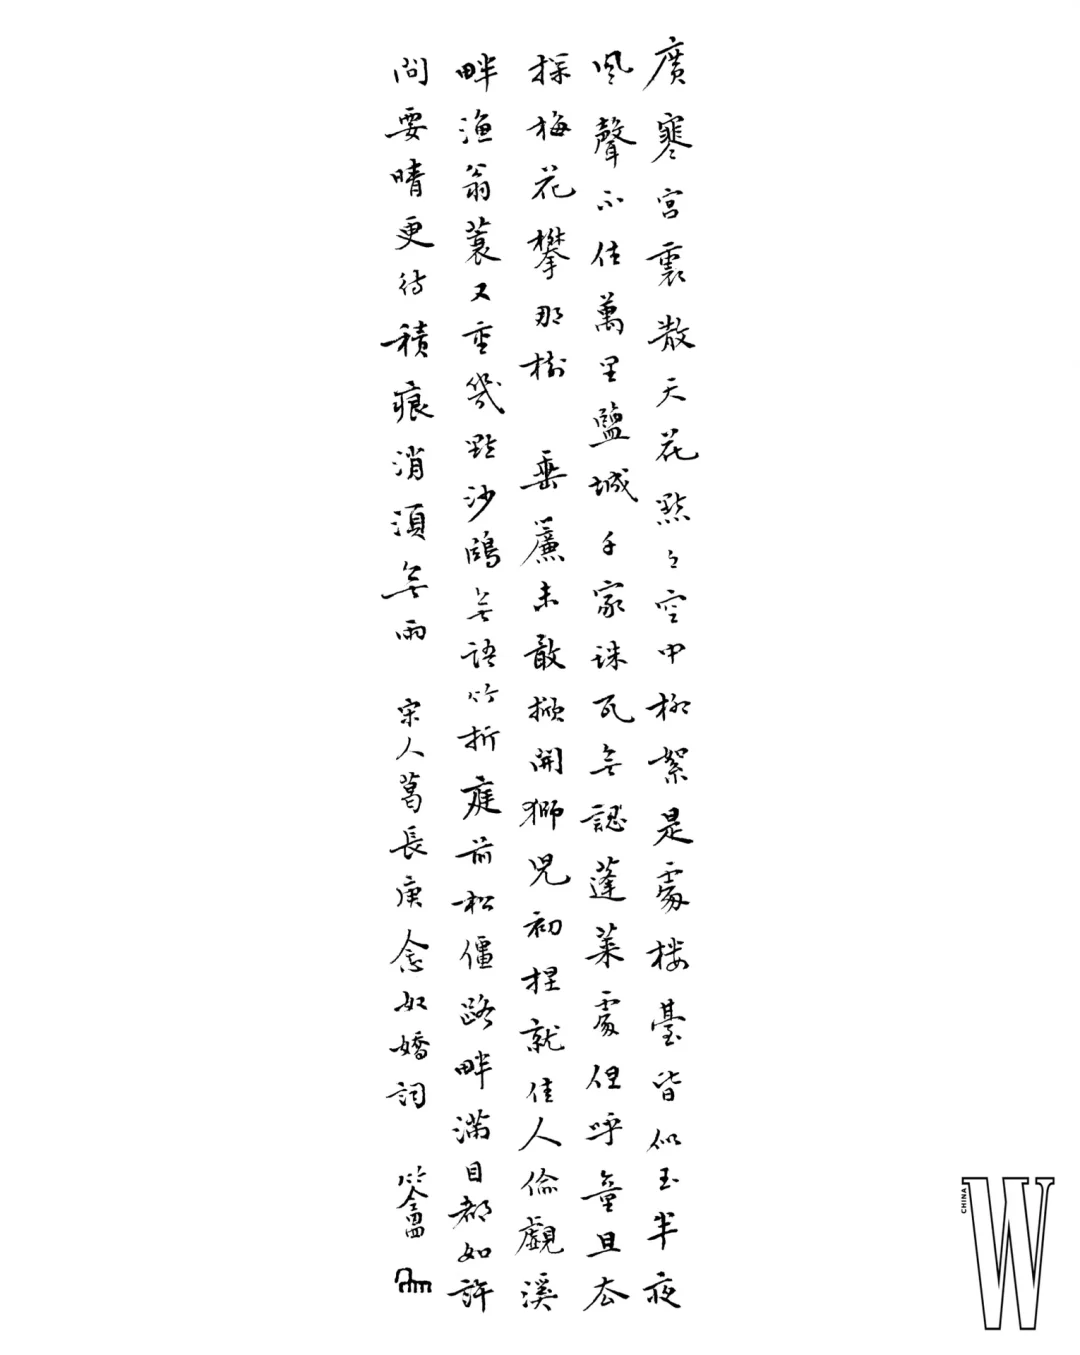 廣寒宮裏散天花點〻空中柳絮是處樓臺皆似玉半夜
風聲不住萬里鹽城千家珠瓦無認蓬萊處但呼童且去
探梅花攀那樹　垂簾未敢掀開獅兒初捏就佳人偷覷溪
畔漁翁蓑又重幾點沙鷗無語竹折庭前松僵路畔滿目都如許
問要晴更待積痕消須無雨　宋人葛長庚念奴嬌詞
CHINA
W